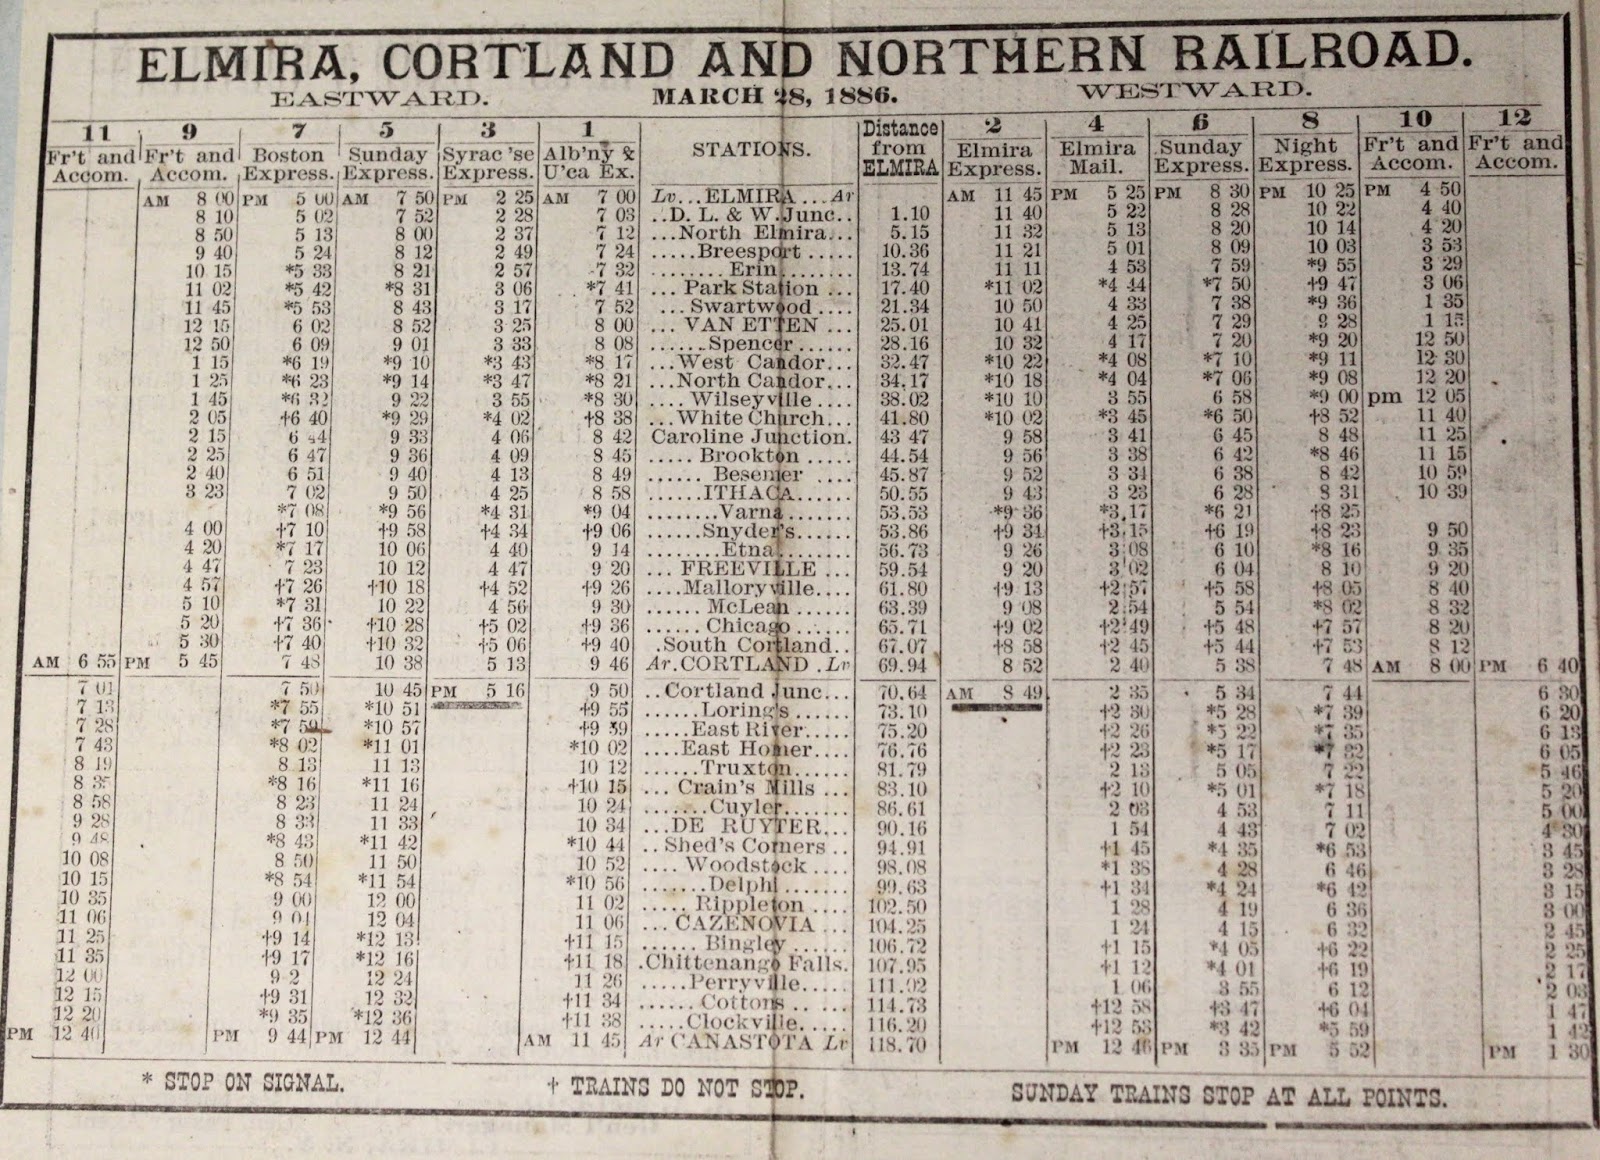 ELMIRA, CORTLAND AND NORTHERN RAILROAD.
EASTWARD. MARCH 28, 1886. WESTWARD.
11 9 7 5 3 1 STATIONS. Distance from ELMIRA 2 4 6 8 10 12
Fr't and Accom. Fr't and Accom. Boston Express. Sunday Express. Syrac'se Express. Alb'ny & U'ca Ex. Elmira Express. Elmira Mail. Sunday Express. Night Express. Fr't and Accom. Fr't and Accom.
AM 8 00 PM 5 00 AM 7 50 PM 2 25 AM 7 00 Lv...ELMIRA...Ar AM 11 45 PM 5 25 PM 8 30 PM 10 25 PM 4 50
8 10 5 02 7 52 2 28 7 03 ..D. L. & W. Junc.. 1.10 11 40 5 22 8 28 10 22 4 40
8 50 5 13 8 00 2 37 7 12 ...North Elmira... 5.15 11 32 5 13 8 20 10 14 4 20
9 40 5 24 8 12 2 49 7 24 .....Breesport..... 10.36 11 21 5 01 8 09 10 03 3 53
10 15 *5 33 8 21 2 57 7 32 ........Erin........ 13.74 11 11 4 53 7 59 *9 55 3 29
11 02 *5 42 *8 31 3 06 *7 41 ... Park Station ... 17.40 *11 02 *4 44 *7 50 †9 47 3 06
11 45 *5 53 8 43 3 17 7 52 ... Swartwood .... 21.34 10 50 4 33 7 38 *9 36 1 35
12 15 6 02 8 52 3 25 8 00 ... VAN ETTEN ... 25.01 10 41 4 25 7 29 9 28 1 15
12 50 6 09 9 01 3 33 8 08 ......Spencer...... 28.16 10 32 4 17 7 20 *9 20 12 50
1 15 *6 19 *9 10 *3 43 *8 17 ...West Candor... 32.47 *10 22 *4 08 *7 10 *9 11 12 30
1 25 *6 23 *9 14 *3 47 *8 21 ...North Candor... 34.17 *10 18 *4 04 *7 06 *9 08 12 20
1 45 *6 32 9 22 3 55 *8 30 .... Wilseyville .... 38.02 *10 10 3 55 6 58 *9 00 pm 12 05
2 05 †6 40 *9 29 *4 02 †8 38 ...White Church... 41.80 *10 02 *3 45 *6 50 †8 52 11 40
2 15 6 44 9 33 4 06 8 42 Caroline Junction. 43 47 9 58 3 41 6 45 8 48 11 25
2 25 6 47 9 36 4 09 8 45 ..... Brookton ..... 44.54 9 56 3 38 6 42 *8 46 11 15
2 40 6 51 9 40 4 13 8 49 ...... Besemer .... 45.87 9 52 3 34 6 38 8 42 10 59
3 23 7 02 9 50 4 25 8 58 ......ITHACA...... 50.55 9 43 3 23 6 28 8 31 10 39
*7 08 *9 56 *4 31 *9 04 ........Varna....... 53.53 *9 36 *3 17 *6 21 †8 25
4 00 †7 10 †9 58 †4 34 †9 06 ......Snyder's...... 53.86 †9 34 †3 15 †6 19 †8 23 9 50
4 20 *7 17 10 06 4 40 9 14 ........Etna........ 56.73 9 26 3 08 6 10 *8 16 9 35
4 47 7 23 10 12 4 47 9 20 ... FREEVILLE ... 59.54 9 20 3 02 6 04 8 10 9 20
4 57 †7 26 †10 18 †4 52 †9 26 ....Malloryville.... 61.80 †9 13 †2 57 †5 58 †8 05 8 40
5 10 *7 31 10 22 4 56 9 30 ...... McLean ...... 63.39 9 08 2 54 5 54 *8 02 8 32
5 20 †7 36 †10 28 †5 02 †9 36 ...... Chicago ...... 65.71 †9 02 †2 49 †5 48 †7 57 8 20
5 30 †7 40 †10 32 †5 06 †9 40 .South Cortland.. 67.07 †8 58 †2 45 †5 44 †7 53 8 12
AM 6 55 PM 5 45 7 48 10 38 5 13 9 46 Ar.CORTLAND.Lv 69.94 8 52 2 40 5 38 7 48 AM 8 00 PM 6 40
7 01 7 50 10 45 PM 5 16 9 50 ..Cortland Junc... 70.64 AM 8 49 2 35 5 34 7 44 6 30
7 13 *7 55 *10 51 †9 55 ......Loring's...... 73.10 †2 30 *5 28 *7 39 6 20
7 28 *7 59 *10 57 †9 59 ....East River..... 75.20 †2 26 *5 22 *7 35 6 13
7 43 *8 02 *11 01 *10 02 ....East Homer.... 76.76 †2 23 *5 17 *7 32 6 05
8 19 8 13 11 13 10 12 ......Truxton...... 81.79 2 13 5 05 7 22 5 46
8 35 *8 16 *11 16 †10 15 ... Crain's Mills ... 83.10 †2 10 *5 01 *7 18 5 20
8 58 8 23 11 24 10 24 .......Cuyler....... 86.61 2 03 4 53 7 11 5 00
9 28 8 33 11 33 10 34 ...DE RUYTER... 90.16 1 54 4 43 7 02 4 30
9 48 *8 43 *11 42 *10 44 .. Shed's Corners .. 94.91 †1 45 *4 35 *6 53 3 45
10 08 8 50 11 50 10 52 .... Woodstock .... 98.08 *1 38 4 28 6 46 3 28
10 15 *8 54 *11 54 *10 56 .......Delphi....... 99.63 †1 34 *4 24 *6 42 3 15
10 35 9 00 12 00 11 02 ..... Rippleton .... 102.50 1 28 4 19 6 36 3 00
11 06 9 04 12 04 11 06 ... CAZENOVIA ... 104.25 1 24 4 15 6 32 2 45
11 25 †9 14 *12 13 †11 15 ...... Bingley ...... 106.72 †1 15 *4 05 †6 22 2 25
11 35 †9 17 *12 16 †11 18 .Chittenango Falls. 107.95 †1 12 *4 01 †6 19 2 17
12 00 9 2 12 24 11 26 .....Perryville..... 111.02 1 06 3 55 6 12 2 03
12 15 †9 31 12 32 †11 34 ...... Cottons .. ... 114.73 †12 58 †3 47 †6 04 1 47
12 20 *9 35 *12 36 †11 38 .....Clockville..... 116.20 †12 53 *3 42 *5 59 1 42
PM 12 40 PM 9 44 PM 12 44 AM 11 45 Ar CANASTOTA Lv 118.70 PM 12 46 PM 3 35 PM 5 52 PM 1 30
* STOP ON SIGNAL. † TRAINS DO NOT STOP. SUNDAY TRAINS STOP AT ALL POINTS.